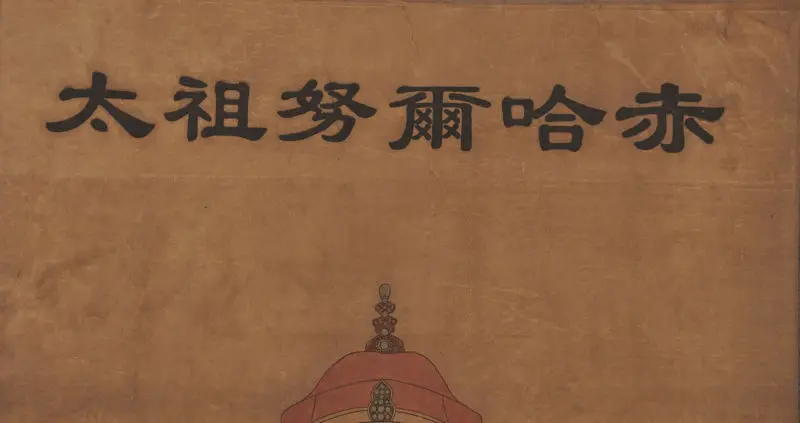 太祖努爾哈赤